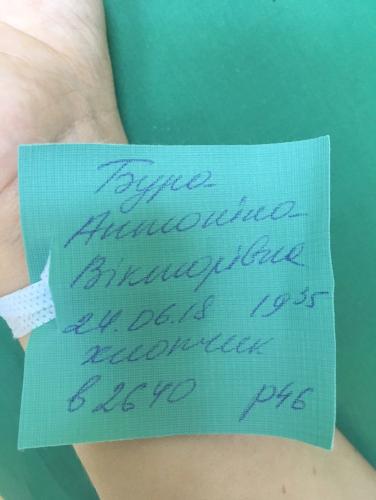 Бура
Антоніна
Вікторівна
24.06.18 19 35
хлопчик
в 2640 р46